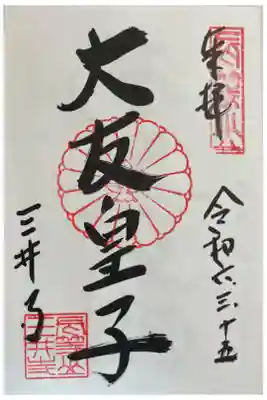 奉拝
大友皇子
令和六三十五
三井寺